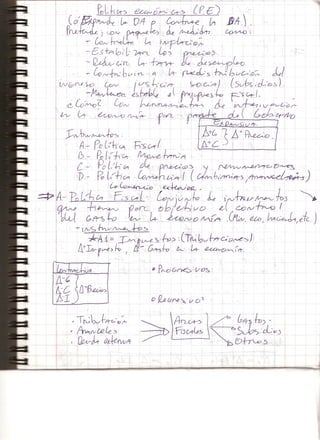 Políticas económicas (P.E)
(o Expande la DA p Contrae la DA).
Pretende, con paquetes de medidas como:
- Controlar la inflación
- Estabilizar los precios
- Reducir la tasa de desempleo
- Contribuir a la redistribución del
ingreso con justicia social (subsidios).
- Mantener estable el presupuesto fiscal.
¿Cómo? Con herramientas de intervención
en la economía por parte del Gobierno
Expansiva
Δ+G
Δ+C
Δ+ Precio.
Instrumentos.
A- Política Fiscal
B- Política Monetaria
C- Política de precios y remuneraciones
D- Política Comercial (cambiarios, arancelarios)
Comercio exterior.
⇒ A- Política Fiscal - Conjunto de instrumentos
que tienen por objetivo el control
del Gasto en la economía (Min. eco, hacienda, etc)
- Instrumentos
A1= Impuestos: (Tributaciones)
Δ+Impuesto, Δ- Gasto en la economía.
Contractiva
Δ-G
Δ-C
Δ-I
Δ- Precios
• Progresivos:
• Regresivo:
• Tributación
• Aranceles
• Deuda externa
Arcas
Fiscales
Gastos.
Subsidios
Otros